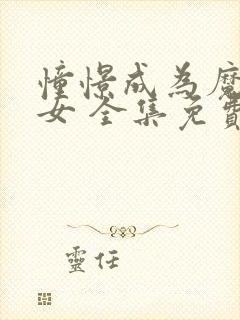 憧憬成為魔
女 全集免費
靈任